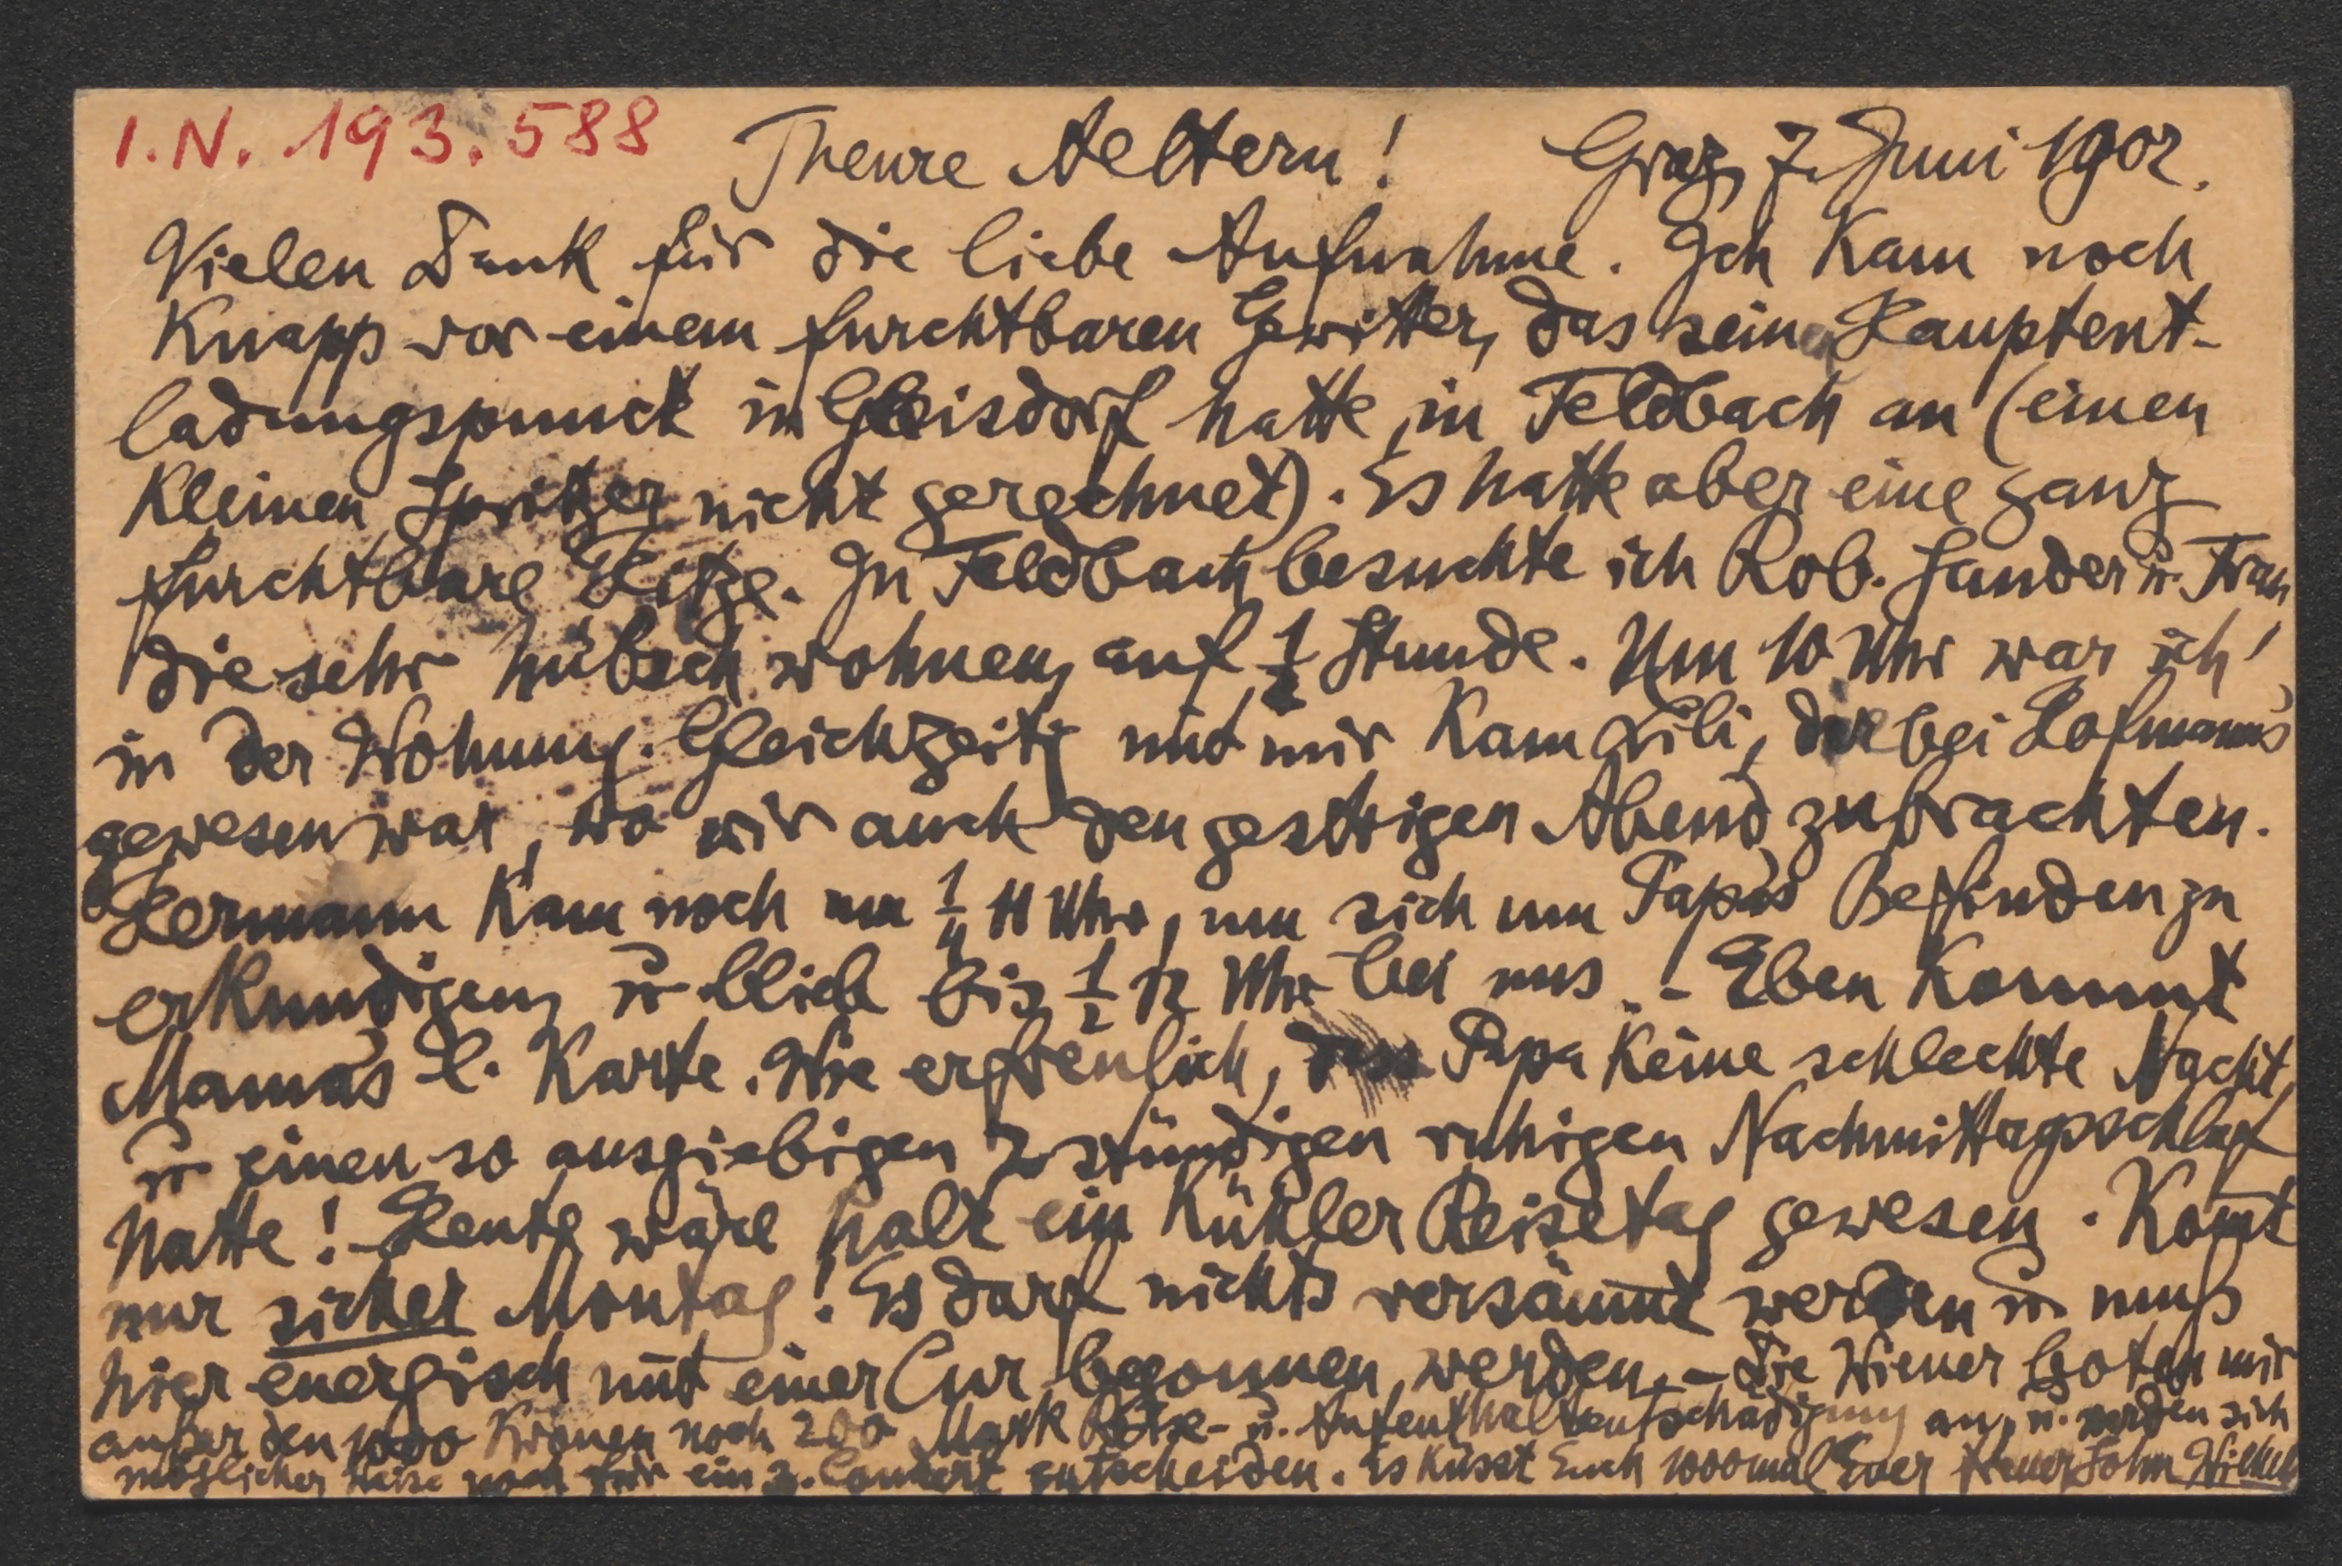 I.N. 193.588
Theure Aeltern! Graz, 7. Juni 1902.
Vielen Dank für die liebe Aufnahme. Ich kam noch
knapp vor einem furchtbaren Gewitter, das seine Hauptent-
ladungspunct in Gleisdorf hatte, in Feldbach an (einen
kleinen Spritzer nicht gerechnet). Es hatte aber eine ganz
furchtbare Hitze. In Feldbach besuchte ich Rob. Sander u. Frau,
die sehr hübsch wohnen, auf ½ Stunde. Um 10 Uhr war ich
in der Wohnung. Gleichzeitig mit mir kam Lili, die bei Hofmanns
gewesen war, wo wir auch den gestrigen Abend zubrachten.
Hermann kam noch um ¼ 11 Uhr, um sich um Papas Befinden zu
erkundigen, u. blieb bis ½ 12 Uhr bei uns. – Eben kommt
Mamas l. Karte. Wie erfreulich, dass Papa keine schlechte Nacht,
u. einen so ausgiebigen 2 stündigen ruhigen Nachmittagsschlaf
hatte! Heute wäre halt ein kühler Reisetag gewesen. Kom̄t
nur sicher Montag! Es darf nichts versäum̄t werden u. muß
hier energisch mit einer Cur begonnen werden. – Die Wiener boten mir
außer den 1000 Kronen noch 200 Mark Reise- u. Aufenthaltentschädigung an, u. werden sich
möglicher Weise noch für ein 2. Concert entscheiden. Es küsst Euch 1000mal Euer treuer Sohn Wilhelm